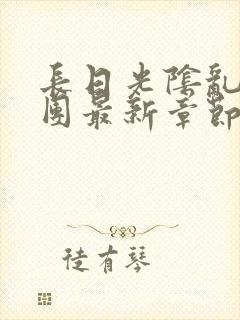 長日光陰亂
團最新章節
徒有琴